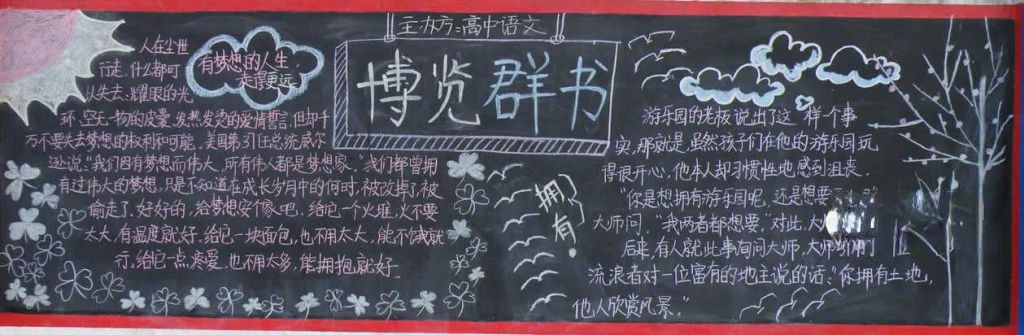 主办方:高中语文
博览群书
有梦想的人生
走得更远
人在尘世
行走,什么都可
以失去:耀眼的光
环、空无一物的皮囊、发热发烫的爱情誓言,但却千
万不要失去梦想的权利和可能。美国第31任总统威尔
逊说:"我们因有梦想而伟大,所有伟人都是梦想家。"我们都曾拥
有过伟大的梦想,只是不知道在成长岁月中的何时,被改掉了,被
偷走了.好好的,给梦想安个家吧,给它一个火堆,火不要
太大,有温度就好.给它一块面包,也不用太大,能不饿就
行.给它一点疼爱,也不用太多,能拥抱就好.
拥有!
游乐园的老板说出了这一样个事
实,那就是,虽然孩子们在他的游乐园玩
得很开心,他本人却习惯性地感到沮丧.
"你是想拥有游乐园呢,还是想要
大师问."我两者都想要."对此,大
后来,有人就此事询问大师,大师引用了
流浪者对一位富有的地主说的话:"你拥有土地,
他人欣赏风景."